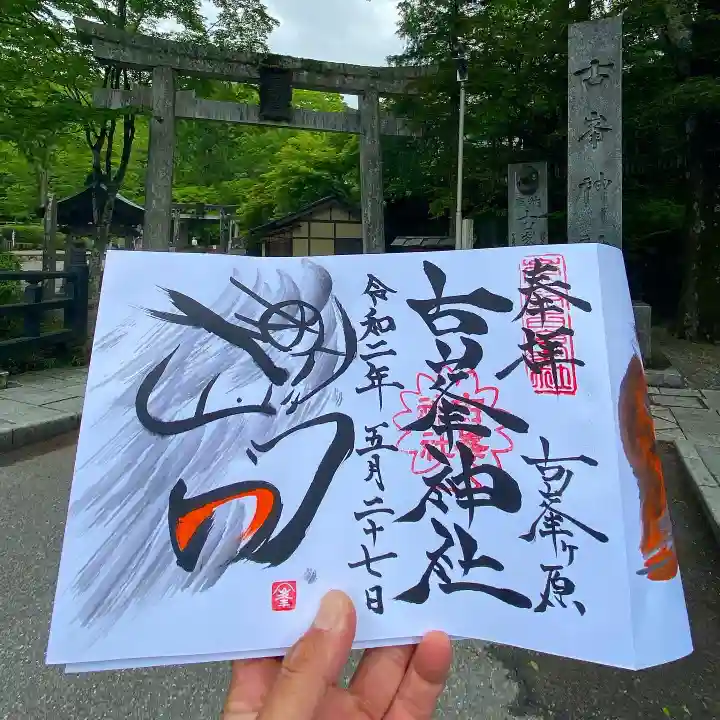 奉拝
古峯ヶ原
古峯神社
令和二年五月二十七日
古峯神